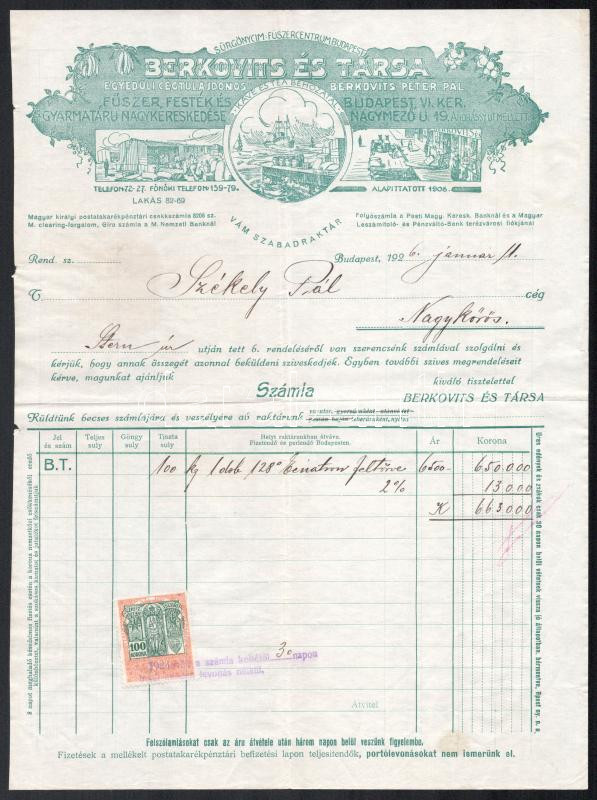 SÜRGÖNYCIM: FÜSZERCENTRUM BUDAPEST
BERKOVITS ÉS TÁRSA
EGYEDÜLI CÉGTULAJDONOS BERKOVITS PÉTER PÁL
KÁVÉ ÉS TEA BEHOZATAL
FŰSZER, FESTÉK ÉS
GYARMATÁRU NAGYKERESKEDÉSE
BUDAPEST, VI. KER.
NAGYMEZŐ U. 19.
TELEFON 72-27. FŐNÖKI TELEFON: 159-79.
LAKÁS 82-69
ALAPITTATOTT 1906.
Magyar királyi postatakarékpénztári csekkszámla 8206 sz.
M. clearing-forgalom, Giro számla a M. Nemzeti Banknál
VÁM SZABADRAKTÁR
Folyószámla a Pesti Magy. Keresk. Banknál és a Magyar
Leszámitoló- és Pénzváltó-Bank terézvárosi fiókjánál
Rend. sz.
Budapest, 1926. január 11.
T. Székely Pál cég
Nagykőrös.
Stern úr utján tett b. rendeléséről van szerencsénk számlával szolgálni és
kérjük, hogy annak összegét azonnal beküldeni sziveskedjék. Egyben további szives megrendeléseit
kérve, magunkat ajánljuk
kiváló tisztelettel
Számla
BERKOVITS ÉS TÁRSA
Küldtünk becses számlájára és veszélyére aó raktárunk
Jel és szám
Teljes suly
Göngy suly
Tiszta suly
Helyi raktárunkban átvéve.
Fizetendő és perlendő Budapesten.
Ár
Korona
B.T. 100 kg 1 dob 128° 6500- 650.000
2% 13.000
K 663.000
100
KORONA
a számla keltétől 30 napon
levonás nélkül.
Átvitel
Felszólamlásokat csak az áru átvétele után három napon belül veszünk figyelembe.
Fizetések a mellékelt postatakarékpénztári befizetési lapon teljesitendők, portólevonásokat nem ismerünk el.